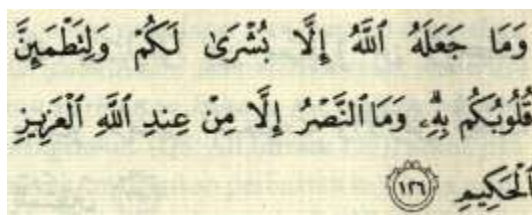 وَمَا جَعَلَهُ ٱللَّهُ إِلَّا بُشْرَىٰ لَكُمْ وَلِتَطْمَئِنَّ
قُلُوبُكُم بِهِۦ وَمَا ٱلنَّصْرُ إِلَّا مِنْ عِندِ ٱللَّهِ ٱلْعَزِيزِ
ٱلْحَكِيمِ ١٢٦